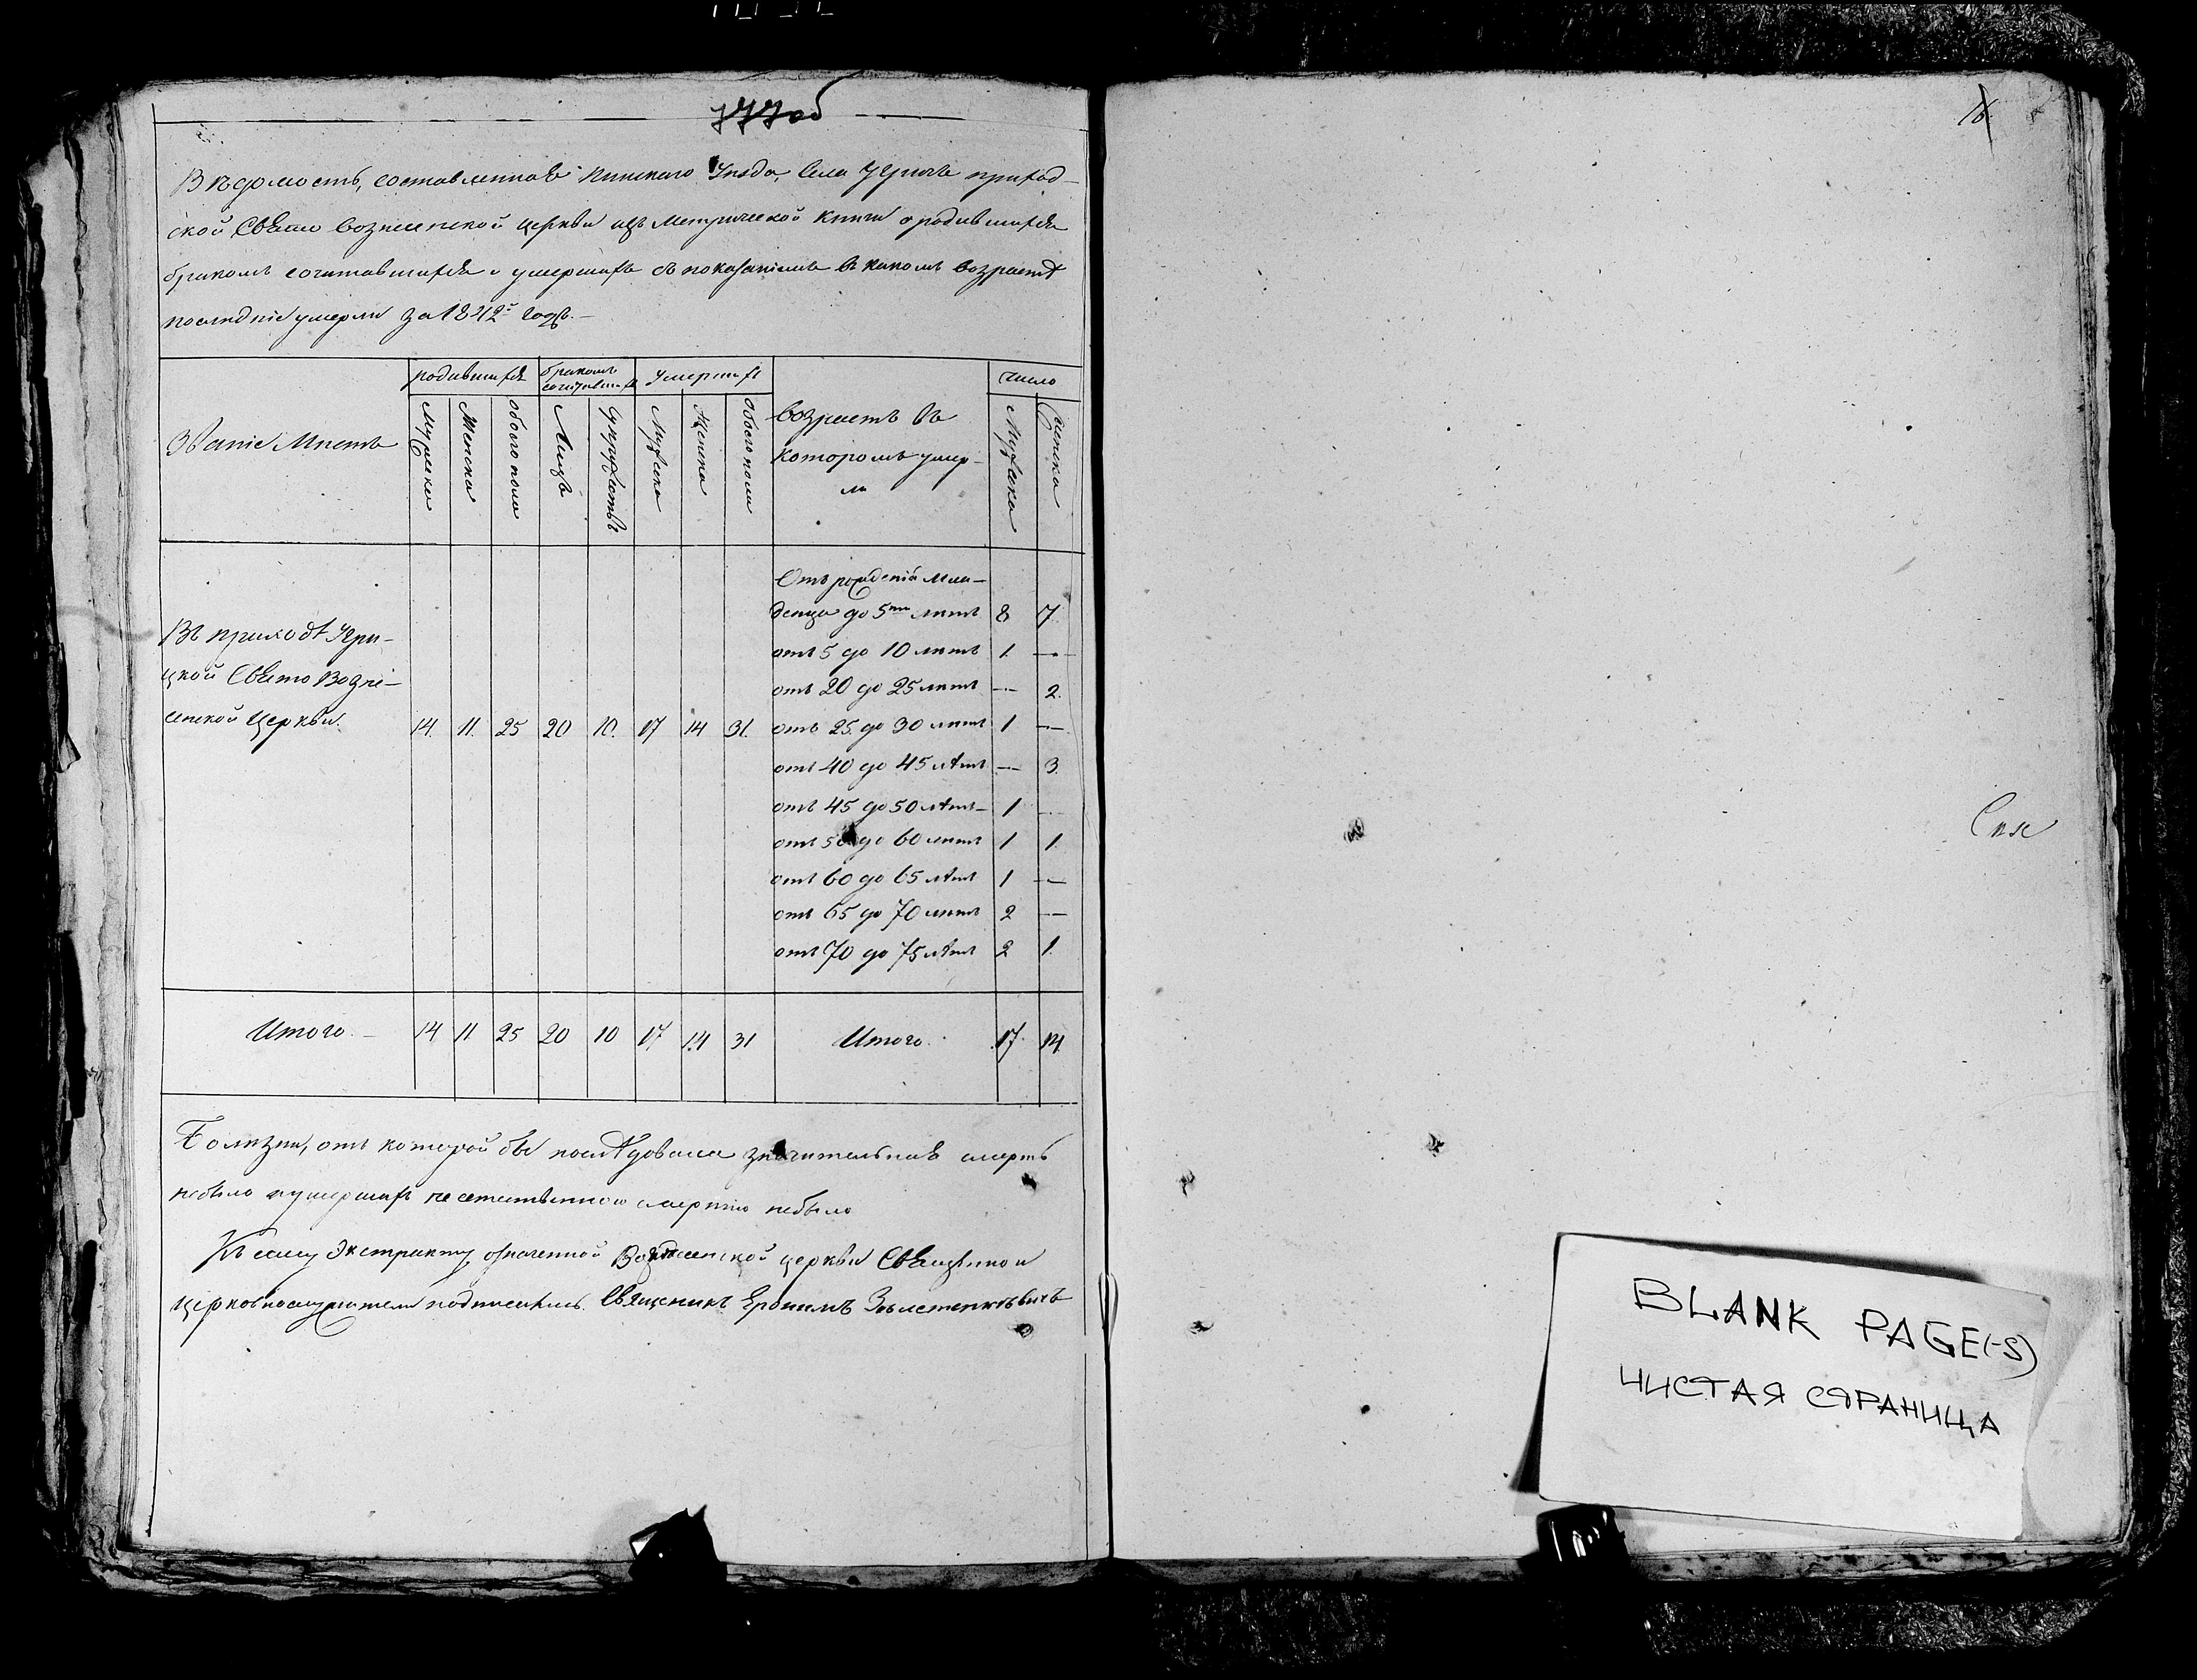 777об
Вѣдомость, составленная Пинскаго Уѣзда, Села приход-
ской Свято Вознесенской церкви изъ Метрической Книги о родившихся
бракомъ сочитавшихся и умершихъ съ показаніемъ въ какомъ возрастѣ
послѣдніе умерли за 1842й годъ.—
родившихся бракомъ сочитавшихся Умершихъ число
Званіе Мѣстъ Мужска Женска обоего пола Лицъ Супружествъ Мужска Женска обоего пола возрастъ въ которомъ умерли Мужска Женска
Отъ рожденія Мла-
денца до 5ти лѣтъ 8 7.
Въ приходѣ отъ 5 до 10 лѣтъ 1. —
цкой Свято Возне- отъ 20 до 25 лѣтъ — 2.
сенской Церкви. 14. 11. 25 20 10. 17 14 31. отъ 25 до 30 лѣтъ 1 —
отъ 40 до 45 лѣтъ — 3.
отъ 45 до 50 лѣтъ 1 —
отъ 50 до 60 лѣтъ 1 1.
отъ 60 до 65 лѣтъ 1 —
отъ 65 до 70 лѣтъ 2 —
отъ 70 до 75 лѣтъ 2 1.
Итого.— 14 11 25 20 10 17 14 31 Итого. 17. 14.
Болѣзни, отъ которой бы послѣдовала значительная смерть
небыло и умершихъ неестественною смертію небыло
Къ сему Экстракту означенной Вознесенской церкви Священно и
церковнослужители подписались. Священикъ Еронимъ
16
BLANK PAGE(-S)
ЧИСТАЯ СТРАНИЦА